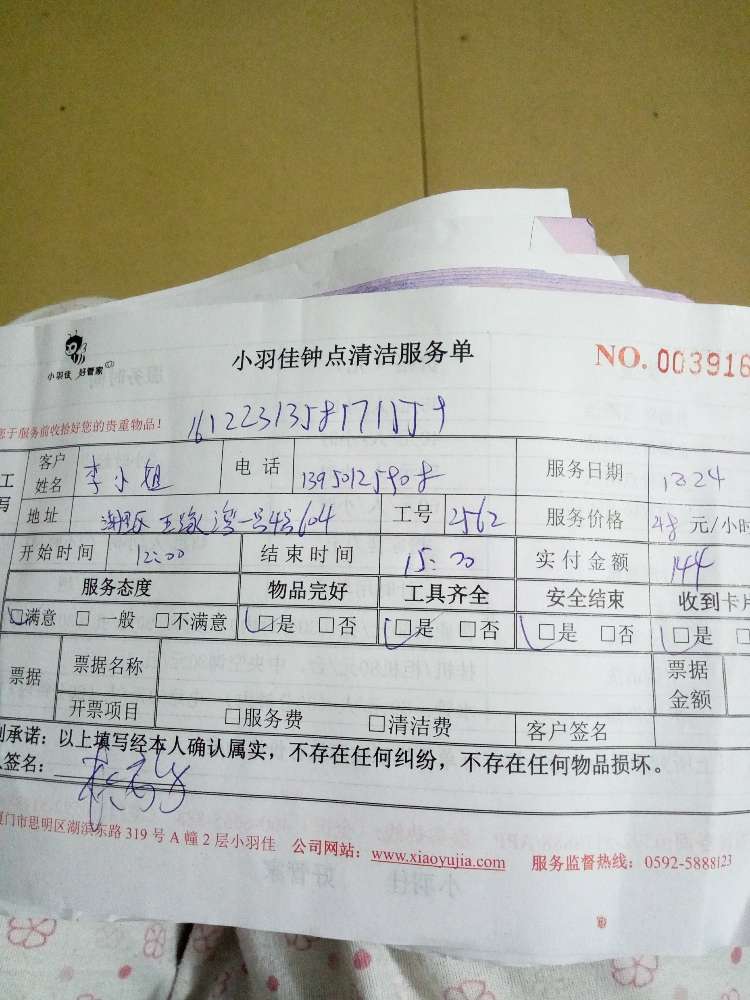 小羽佳 好管家
小羽佳钟点清洁服务单
NO. 003916
您于服务前收拾好您的贵重物品!
工 客户姓名 李小姐 电话 服务日期 12.24
写 地址 一号4号604 工号 2562 服务价格 48 元/小
开始时间 12:00 结束时间 15:00 实付金额 144
服务态度 物品完好 工具齐全 安全结束 收到卡片
□满意 □一般 □不满意 □是 □否 □是 □否 □是 □否 □是
票据 票据名称 票据金额
开票项目 □服务费 □清洁费 客户签名
承诺:以上填写经本人确认属实,不存在任何纠纷,不存在任何物品损坏。
签名:
厦门市思明区湖滨东路 319 号 A 幢 2 层小羽佳 公司网站:www.xiaoyujia.com 服务监督热线:0592-5888123